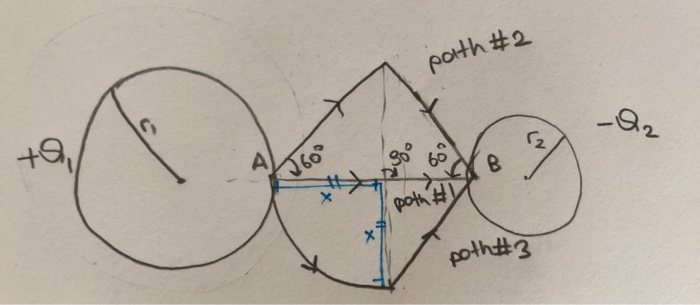 path #2
+Q₁
r₁
A
60°
90°
60°
B
r₂
-Q₂
x
path #1
x
path #3